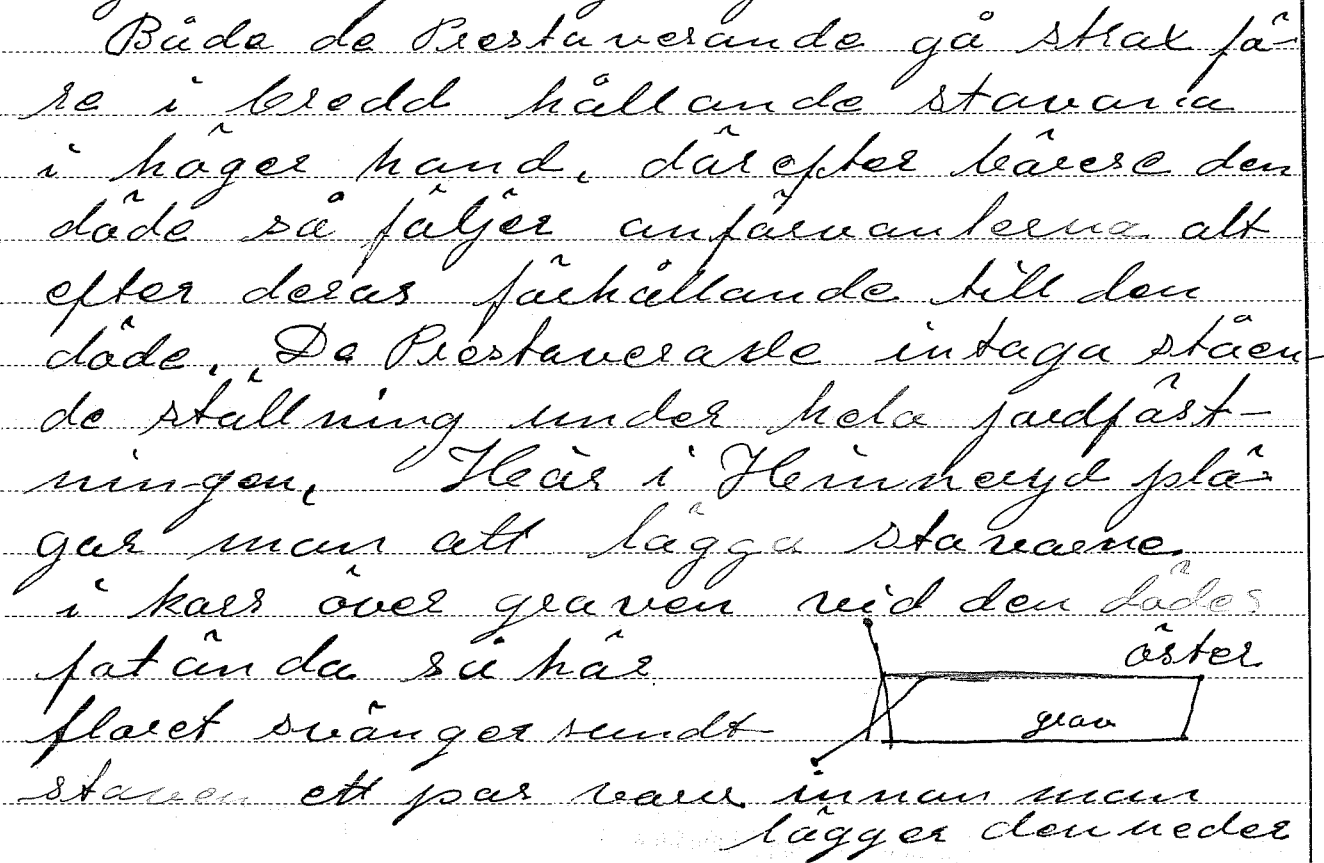 Både de Prestaverande gå strax fö-
re i bredd hållande stavarna
i höger hand, därefter bäres den
döde så följer anförvanterna alt
efter deras förhållande till den
döde. De Prestaverade intaga ståen-
de ställning under hela jordfäst-
ningen, Häar i Hinneryd plä-
gar man att lägga stavarne
i kors över graven vid den dödes
fotända så här
öster
grav
floret svänger rundt
staven ett par varv innan man
lägger den neder